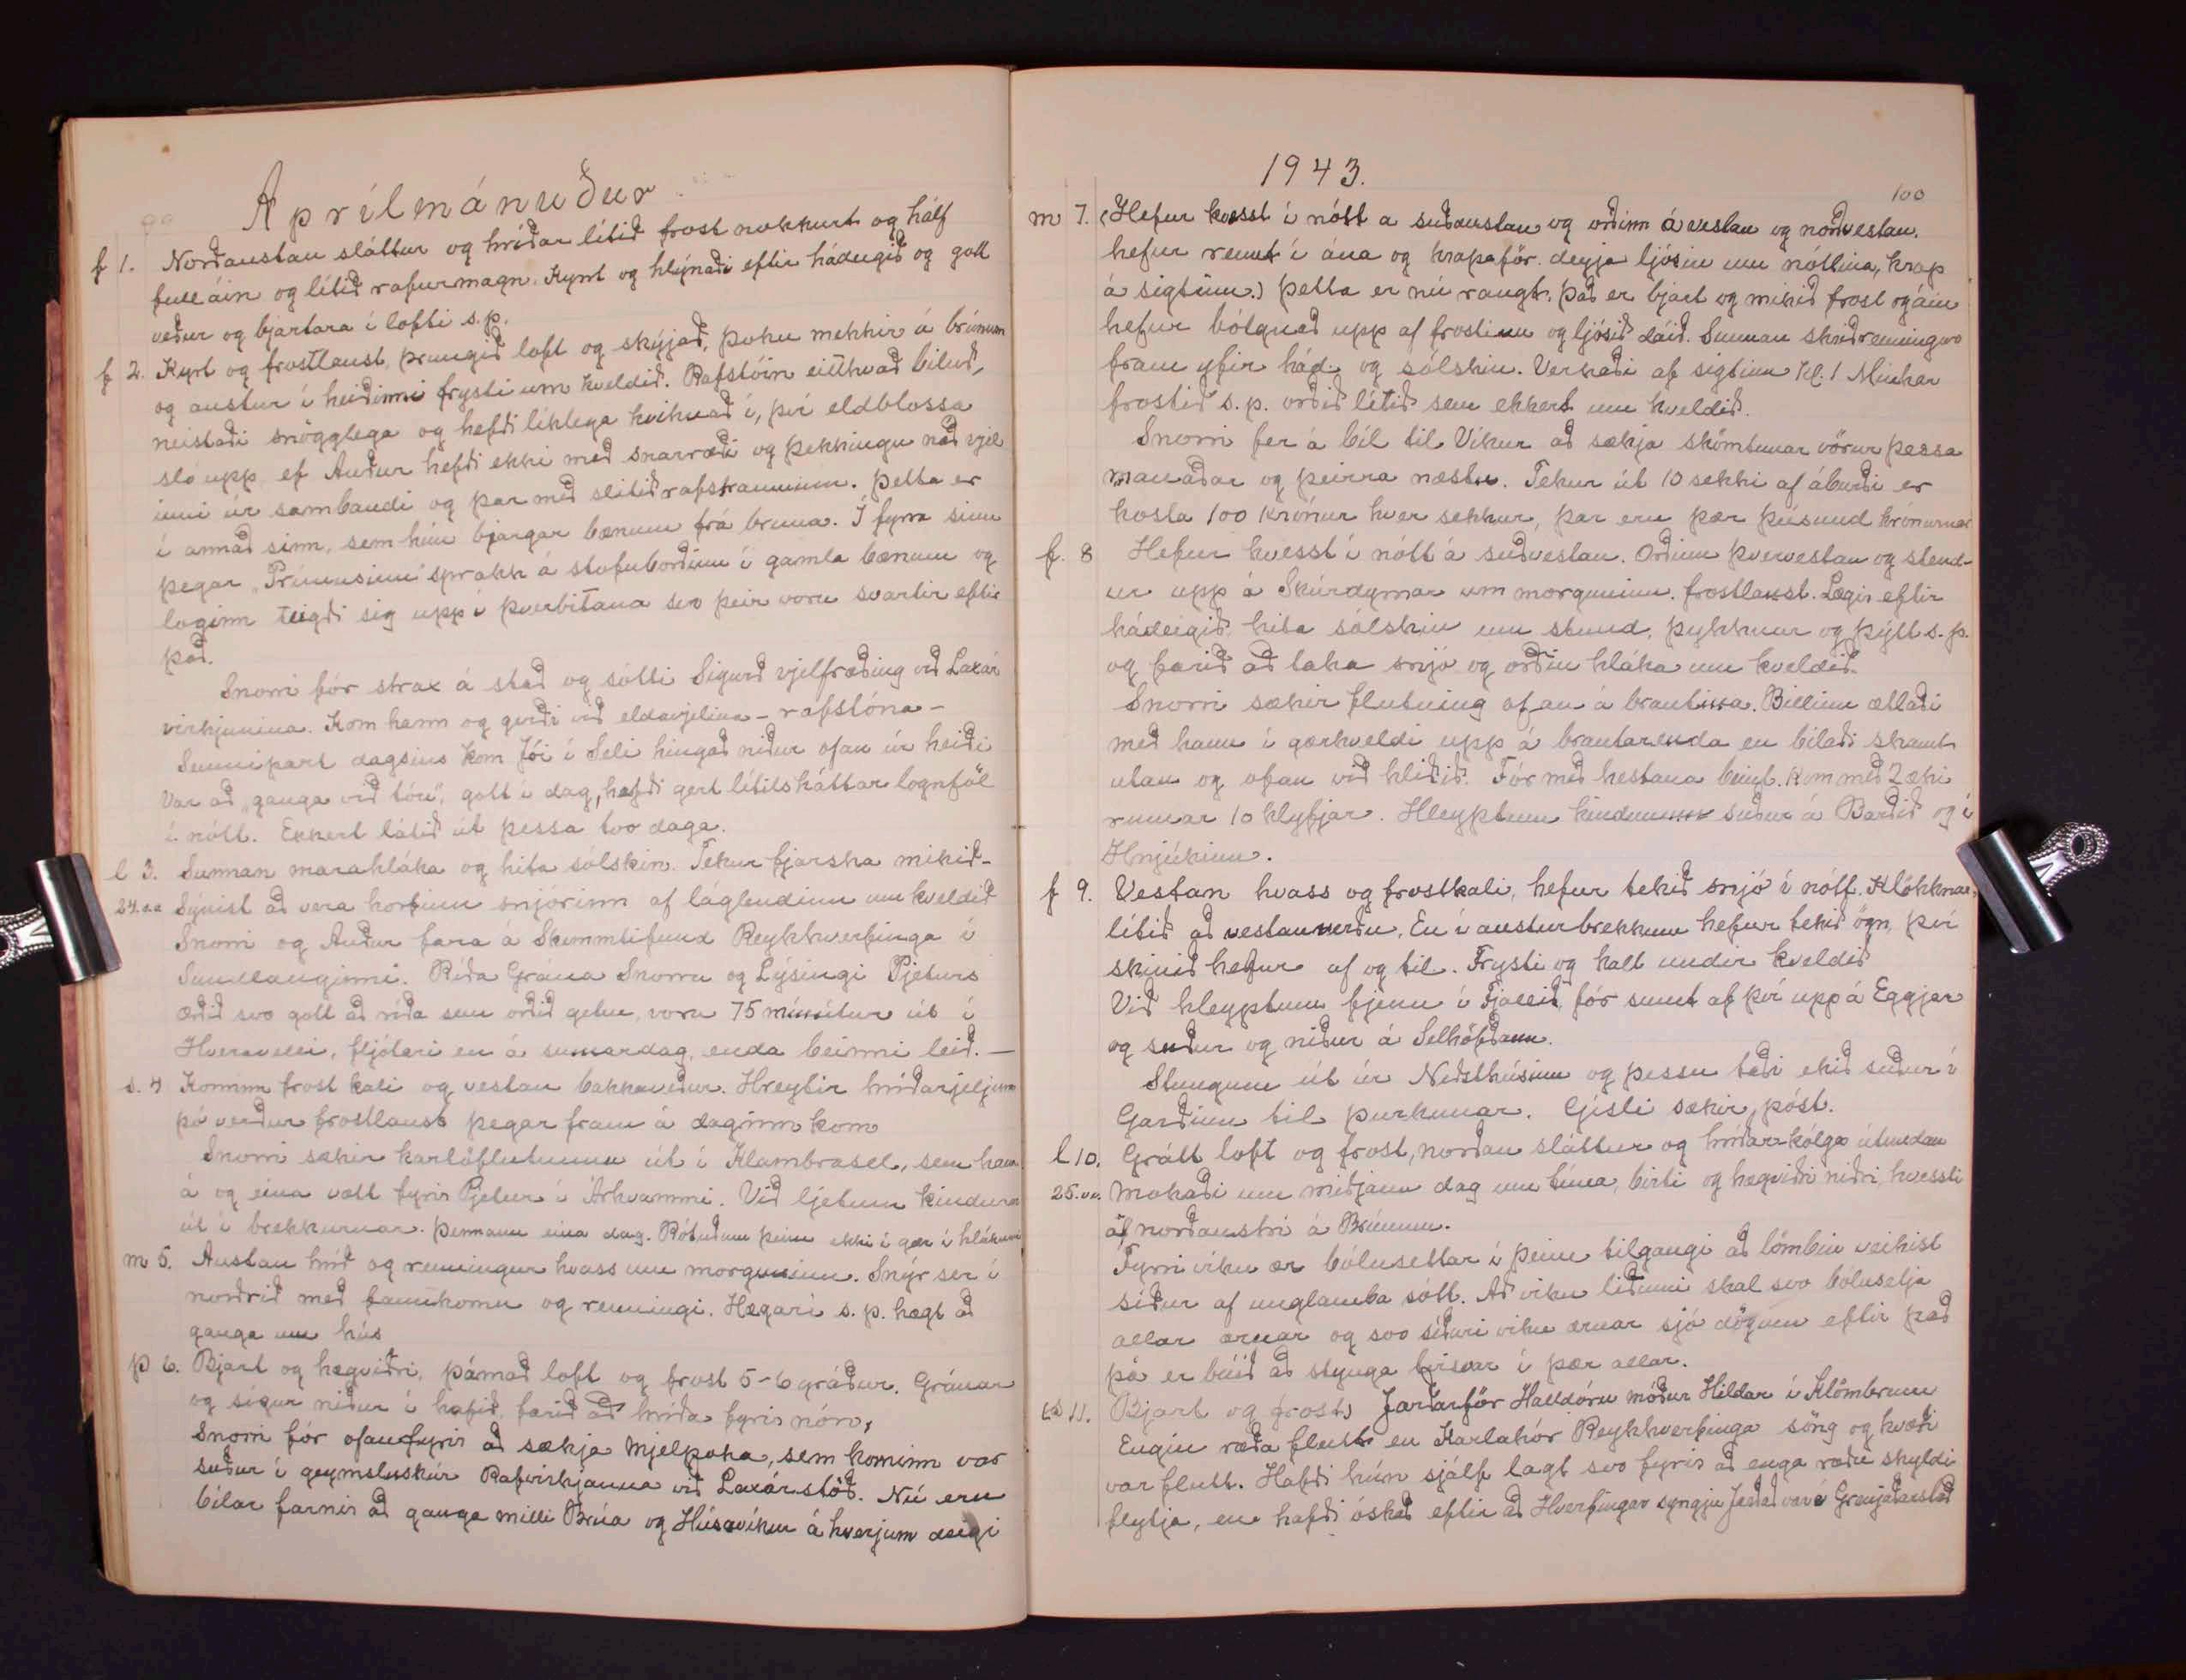 99
Aprílmánuður
f 1. Norðaustan sláttur og hríðar lítið frost nokkurt og hálf
full áin og lítið rafurmagn. Kyrt og hlýnaði eftir hádegið og gott
veður og bjartara í lofti s.p.
f 2. Kyrt og frostlaust, þrungið loft og skýjað, þoku mekkir á brúnum
og austur í heiðinni frysti um kveldið. Rafstöin eitthvað biluð,
neistaði snögglega og hefði líklega kviknað í, því eldblossa
sló upp ef Auður hefði ekki með snarræði og þekkingu náð vjel
inni úr sambandi og þar með slitið rafstrauminn. Þetta er
í annað sinn, sem hún bjargar bænum frá bruna. Í fyrra sinn
þegar „Prímusinn" sprakk á stofuborðinu í gamla bænum og
loginn teigði sig upp í þverbitana svo þeir voru svartir eftir
það.
Snorri fór strax á stað og sótti Sigurð vjelfræðing við Laxár
virkjunina. Kom hann og gerði við eldavjelina - rafstóna -
Seinnipart dagsins kom Jói í Seli hingað niður ofan úr heiði
Var að „ganga við tóu", gott í dag, hafði gert lítilsháttar lognföl
í nótt. Ekkert látið út þessa tvo daga.
l 3. Sunnan marahláka og hita sólskin. Tekur fjarska mikið-
24.a.a Sýnist að vera horfinn snjórinn af láglendinu um kveldið
Snorri og Auður fara á Skemmtifund Reykhverfinga í
Sundlauginni. Ríða Grána Snorra og Lýsingi Pjeturs
Orðið svo gott að ríða sem orðið getur, voru 75 mínútur út í
Hveravelli, fljótari en á sumardag, enda beinni leið. —
s. 4 Kominn frost kali og vestan bakkaveður. Hreytir hríðarjeljum
þó verður frostlaust þegar fram á daginn kom
Snorri sækir kartöflutunnu út í Klambrasel, sem hann
á og eina vætt fyrir Pjetur í Árhvammi. Við ljetum kindurnar
út í brekkurnar. þennann eina dag. Rótuðum þeim ekki í gær í hlákunni
m 5. Austan hríð og renningur hvass um morguninn. Snýr sér í
norðrið með fannkomu og renningi. Hægari s.p. hægt að
ganga um hús
þ 6. Bjart og hægviðri, þámað loft og frost 5-6 gráður. Gránar
og sígur niður í hafið, farið að hríða fyrir nón,
Snorri fór ofanfyrir að sækja mjelpoka, sem kominn var
suður í geymsluskúr Rafvirkjanna við Laxárstöð. Nú eru
bílar farnir að ganga milli Brúa og Húsavíkur á hverjum deigi
1943.
100
m 7. (Hefur hvesst í nótt a suðaustan og orðinn á vestan og norðvestan.
hefur rennt í ána og krapaför. deyja ljósin um nóttina, krap
á sigtinu.) Þetta er nú rangt. Það er bjart og mikið frost og áin
hefur bólgnað upp af frostinu og ljósið dáið. Sunnan skriðrenningur
fram yfir hád. og sólskin. Verkaði af sigtinu kl. 1 Minkar
frostið s.p. orðið lítið sem ekkert um kveldið.
Snorri fer á bíl til Víkur að sækja skömtunar vörur þessa
manaðar og þeirra næstu. Tekur út 10 sekki af áburði er
kosta 100 krónur hver sekkur, þar eru þær þúsund krónurnar
f. 8 Hefur hvesst í nótt á suðvestan. Orðinn þvervestan og stend-
ur upp á Skúrdyrnar um morguninn. frostlaust. Lægir eftir
hádeigið hita sólskin um stund, þykknar og þýtt s.p.
og farið að taka snjó og orðin hláka um kveldið.
Snorri sækir flutning ofan á brautina. Billinn ætlaði
með hann í gærkveldi upp á brautarenda en bilaði skamt
utan og ofan við hliðið. Fór með hestana beint. Kom með 2 æki
rumar 10 klyfjar. Hleyptum kindunum suður á Barðið og í
Hnjúkinn.
f 9. Vestan hvass og frostkali, hefur tekið snjó í nótt. Klökknar
lítið að vestanverðu, En í austurbrekkum hefur tekið ögn, því
skinið hefur af og til. Frysti og kalt undir kveldið
Við hleyptum fjenu í Fjallið, fór sumt af því upp á Eggjar
og suður og niður á Selhöfðann.
Stungum út úr Neðsthúsinu og þessu taði ekið suður í
Garðinn til þurkunar. Gísli sækir póst.
l 10. Grátt loft og frost, norðan sláttur og hríðar-kólga útundan
25.v.v. mokaði um miðjann dag um tíma, birti og hægviðri niðri, hvessti
af norðaustri á Brúnum.
Fyrri viku ær bólusettar í þeim tilgangi að lömbin veikist
síður af unglamba sótt. Að viku liðinni skal svo bólusetja
allar ærnar og svo síðari viku ærnar sjö dögum eftir það
þá er búið að stynga tvisvar í þær allar.
(s 11. Bjart og frost) Jarðarför Halldóru móður Hildar í Klömbrum
Engin ræða flutt en Karlakór Reykhverfinga söng og kvæði
var flutt. Hafði hún sjálf lagt svo fyrir að enga ræðu skyldi
flytja, en hafði óskað eftir að Hverfingar syngju Jarðað var á Grenjaðarstað